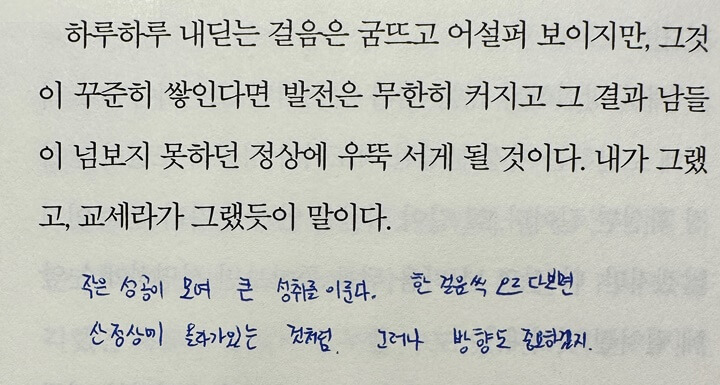 하루하루 내딛는 걸음은 굼뜨고 어설퍼 보이지만, 그것
이 꾸준히 쌓인다면 발전은 무한히 커지고 그 결과 남들
이 넘보지 못하던 정상에 우뚝 서게 될 것이다. 내가 그랬
고, 교세라가 그랬듯이 말이다.
작은 성공이 모여 큰 성취를 이룬다. 한 걸음씩 오르다보면
산정상에 올라가있는 것처럼. 그러나 방향도 중요하겠지.